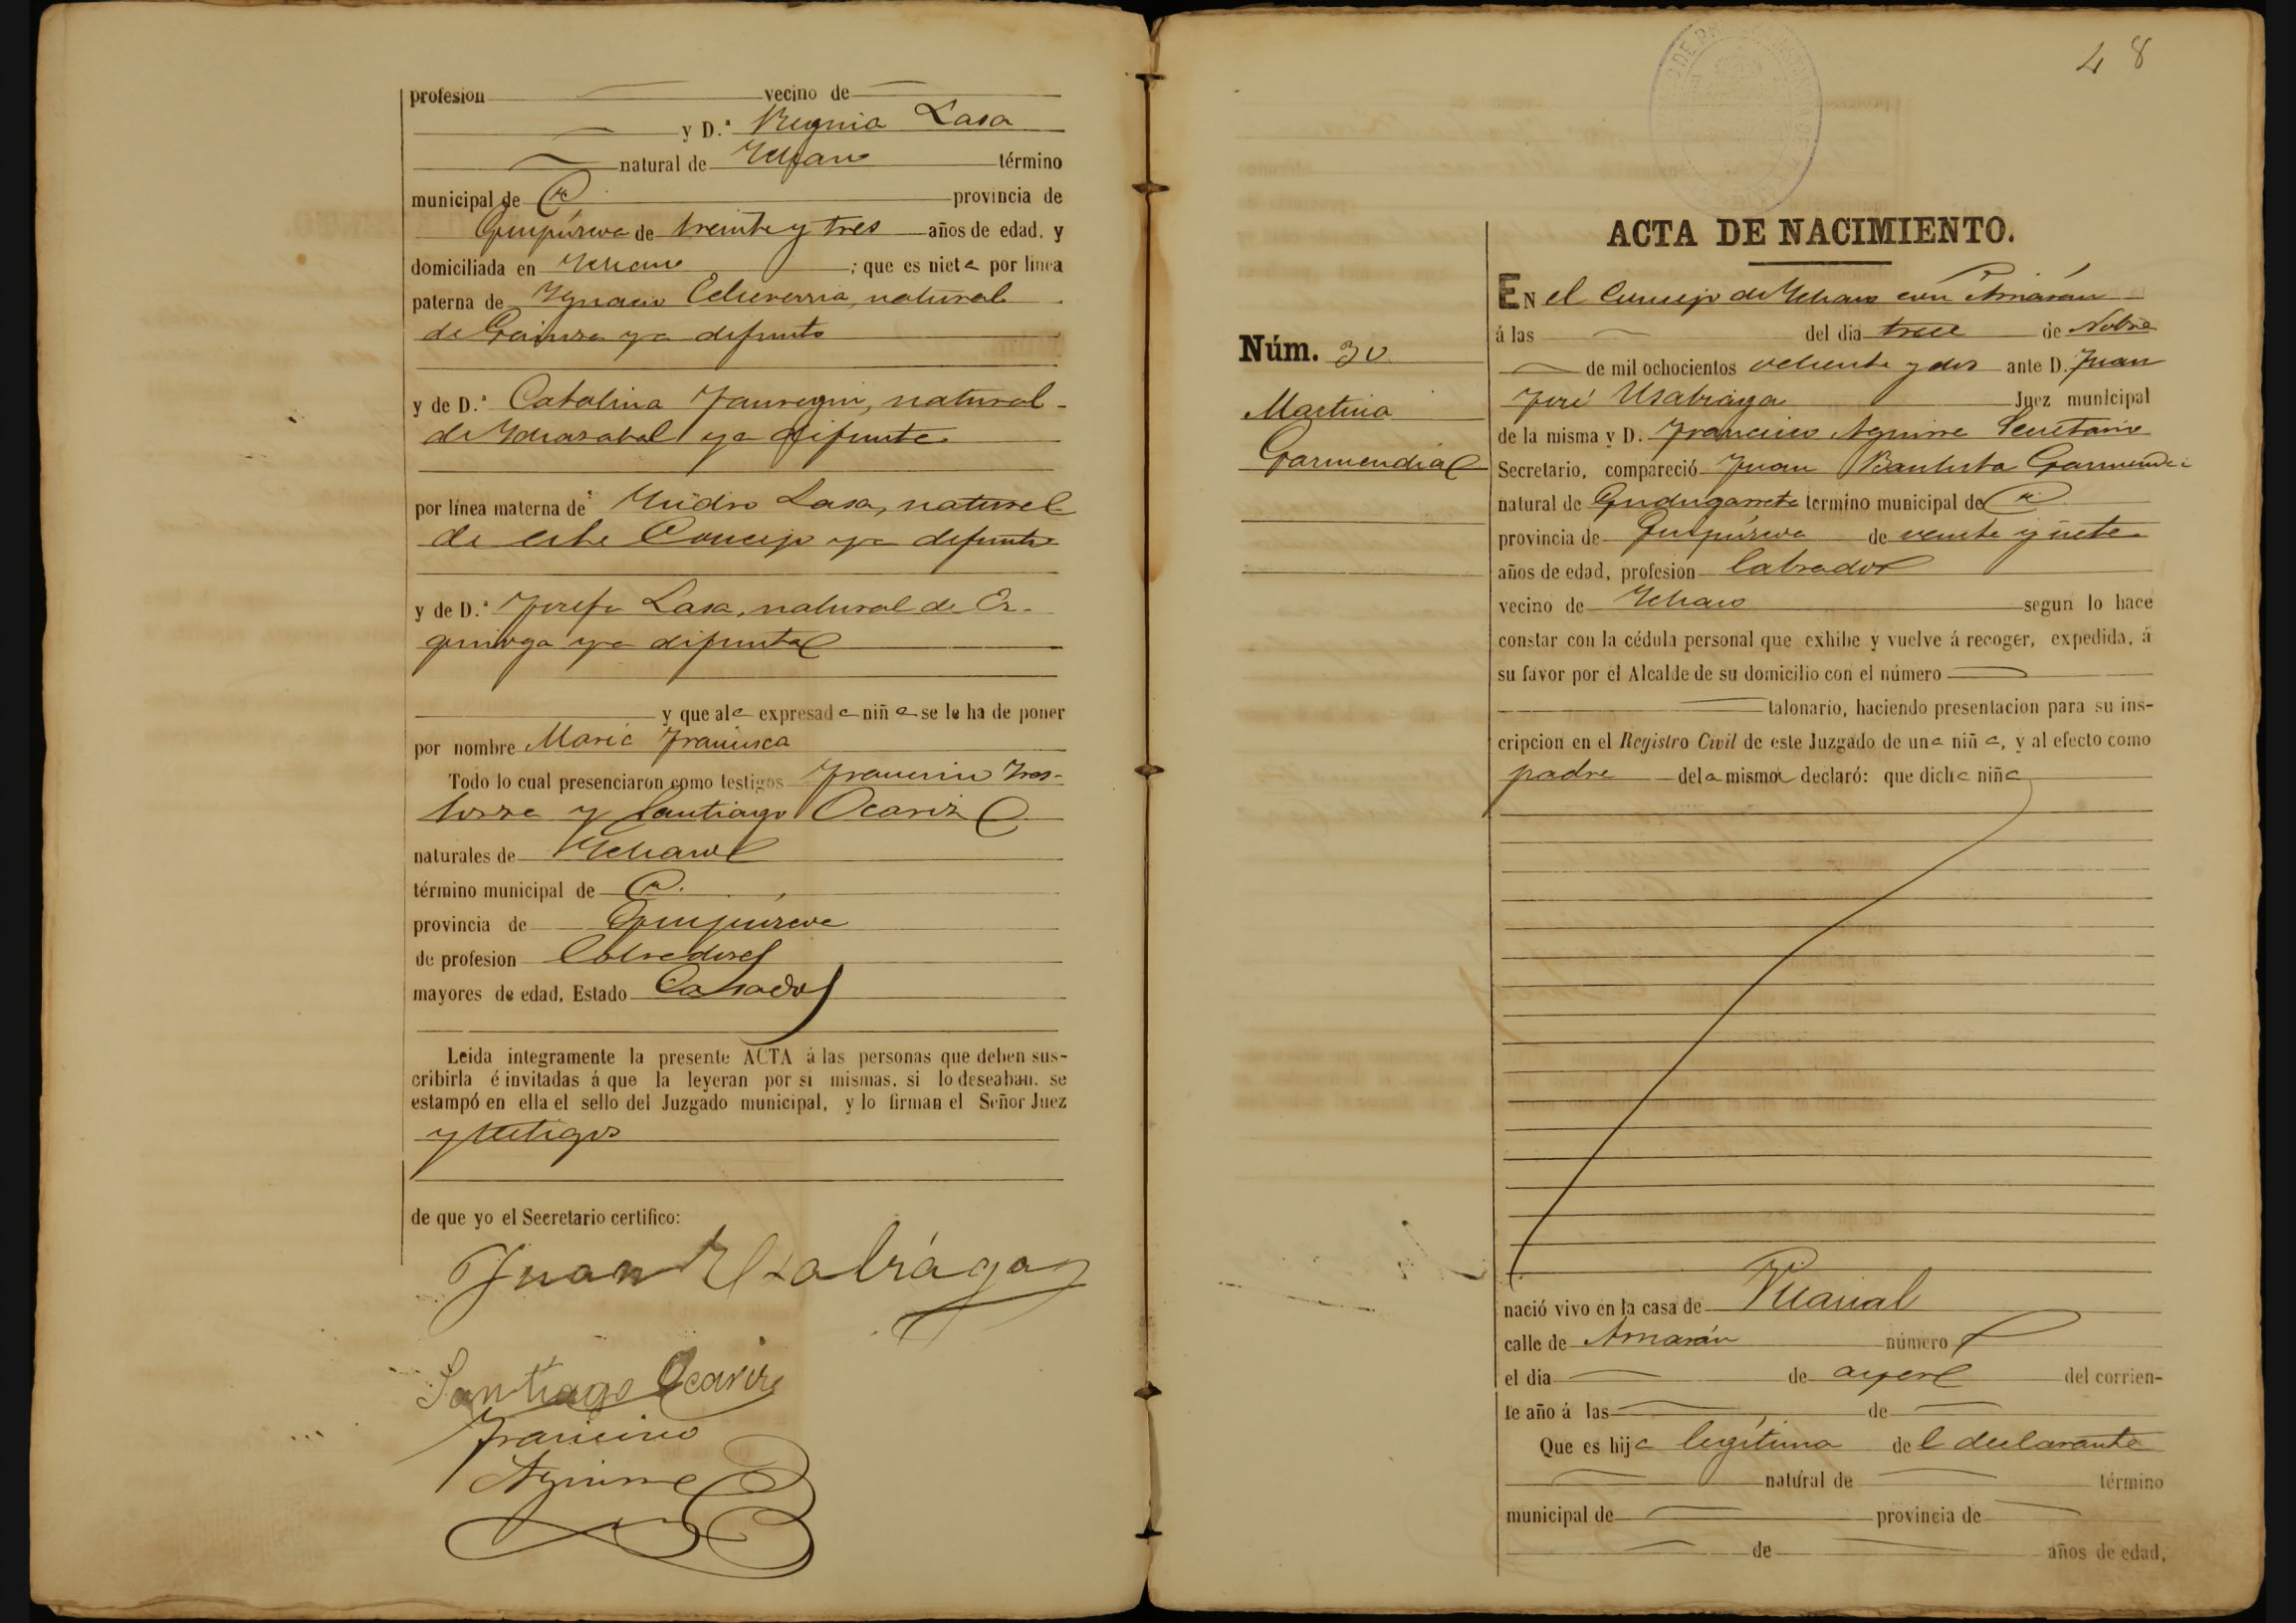 profesion vecino de
y D.ª Lasa
natural de Ichaso término
municipal de id. provincia de
Guipúzcoa de treinta y tres años de edad, y
domiciliada en Ichaso ; que es nieta por línea
paterna de Ignacio Echeverria, natural
de Gainza ya difunto
y de D.ª Catalina Jauregui, natural
de Idiazabal ya difunta
por línea materna de Isidro Lasa, natural
de este Concejo ya difunto
y de D.ª Josefa Lasa, natural de Ez-
quioga ya difunta
y que al a expresad a niñ a se le ha de poner
por nombre Maria Francisca
Todo lo cual presenciaron como testigos Francisco
y Santiago Ocariz
naturales de Ichaso
término municipal de id.
provincia de Guipúzcoa
de profesion Labradores
mayores de edad, Estado Casados
Leida integramente la presente ACTA á las personas que deben sus-
cribirla é invitadas á que la leyeran por si mismas, si lo deseaban, se
estampó en ella el sello del Juzgado municipal, y lo firman el Señor Juez
y testigos
de que yo el Secretario certifico:
Juan Usabiaga
Santiago Ocariz
Francisco
Aguirre
48
ACTA DE NACIMIENTO.
Núm. 30
Martina
Garmendia
EN el Concejo de Ichaso con Arriarán
á las del dia trece de Nobre
de mil ochocientos ochenta y dos ante D. Juan
José Usabiaga Juez municipal
de la misma y D. Francisco Aguirre Secretario
Secretario, compareció Juan Bautista Garmendia
natural de Gudugarreta termino municipal de id.
provincia de Guipúzcoa de veinte y siete
años de edad, profesion labrador
vecino de Ichaso segun lo hace
constar con la cédula personal que exhibe y vuelve á recoger, expedida, á
su favor por el Alcalde de su domicilio con el número
talonario, haciendo presentacion para su ins-
cripcion en el Registro Civil de este Juzgado de una niñ a, y al efecto como
padre del a misma declaró: que dich a niña
nació vivo en la casa de Vicarial
calle de Arriarán número
el dia de ayer del corrien-
te año á las de
Que es hija legítima de l declarante
natural de término
municipal de provincia de
de años de edad,